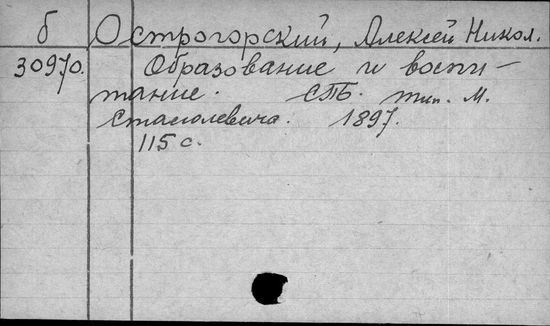 б Острогорский, Алексей Никол.
30970. Образование и воспи-
тание. СПБ. тип. М.
Стасюлевича. 1897.
115 с.